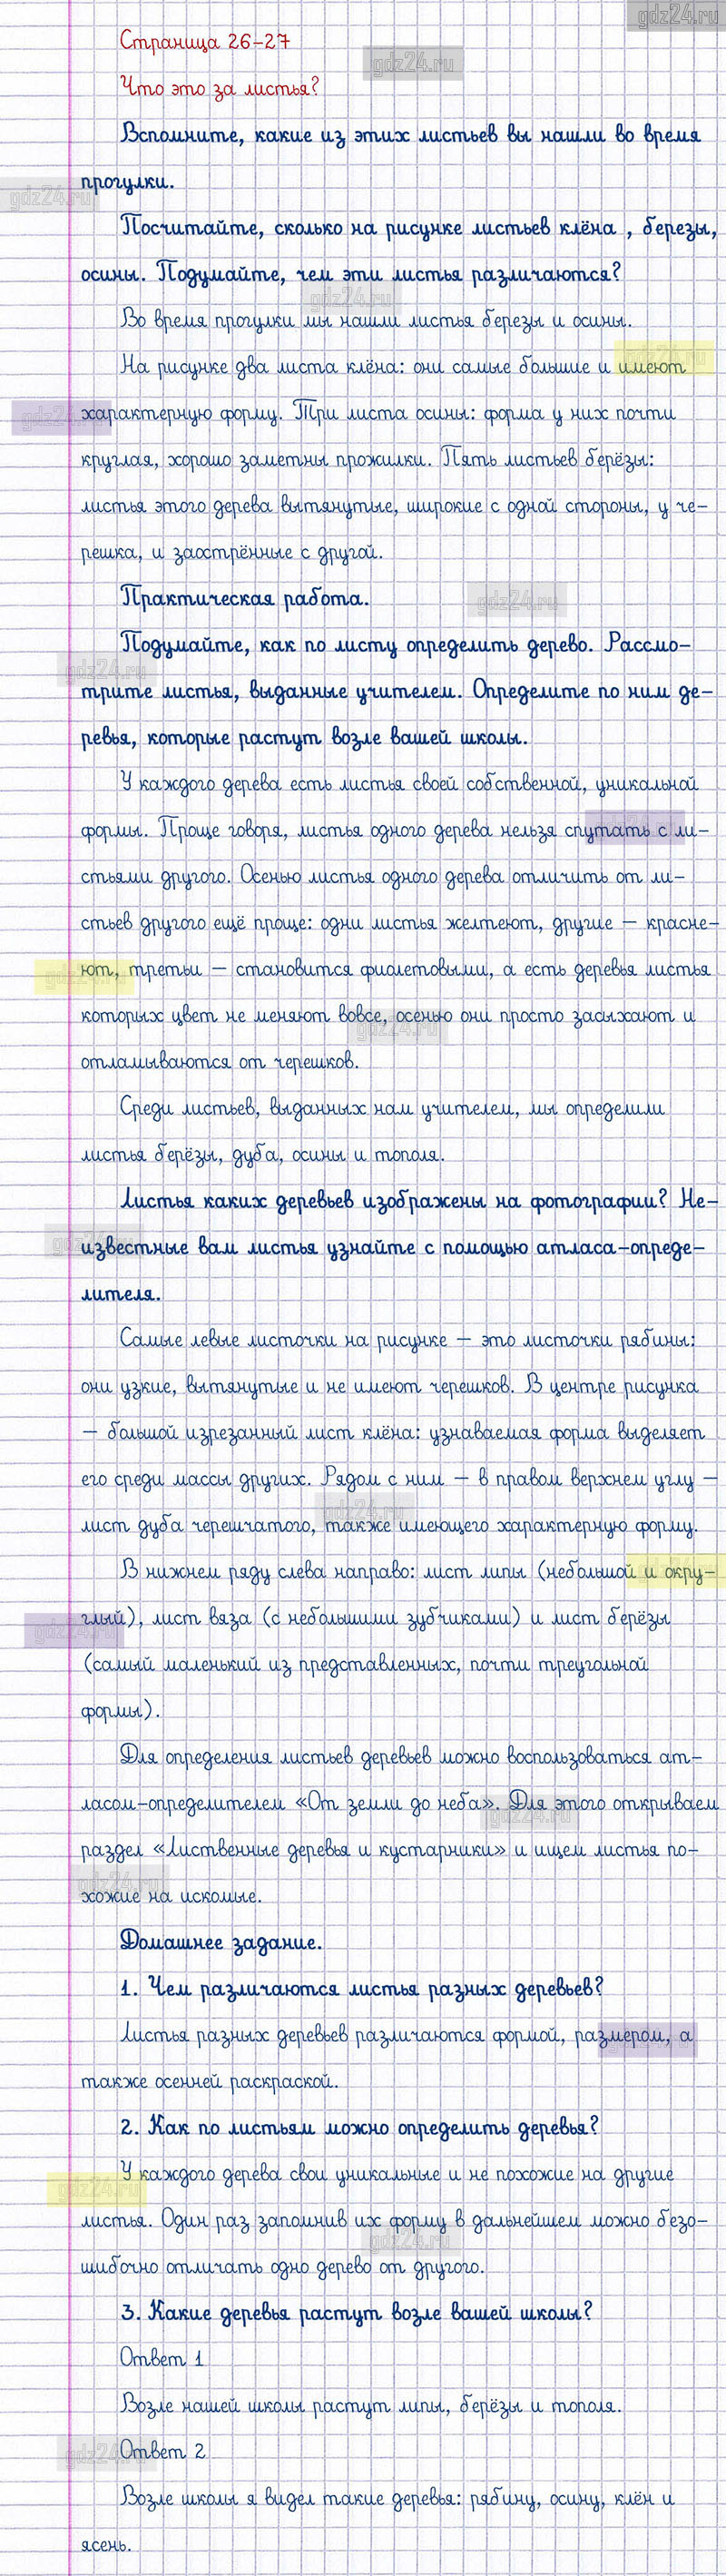 gdz24.ru
Страница 26-27
gdz24.ru
Что это за листья?
Вспомните, какие из этих листьев вы нашли во время
прогулки.
gdz24.ru
Посчитайте, сколько на рисунке листьев клёна , березы,
осины. Подумайте, чем эти листья различаются?
gdz24.ru
Во время прогулки мы нашли листья березы и осины.
gdz24.ru
На рисунке два листа клёна: они самые большие и имеют
gdz24.ru
характерную форму. Три листа осины: форма у них почти
круглая, хорошо заметны прожилки. Пять листьев берёзы:
листья этого дерева вытянутые, широкие с одной стороны, у че-
решка, и заострённые с другой.
Практическая работа.
gdz24.ru
Подумайте, как по листу определить дерево. Рассмо-
gdz24.ru
трите листья, выданные учителем. Определите по ним де-
ревья, которые растут возле вашей школы.
У каждого дерева есть листья своей собственной, уникальной
формы. Проще говоря, листья одного дерева нельзя спутать с ли-
стьями другого. Осенью листья одного дерева отличить от ли-
стьев другого ещё проще: одни листья желтеют, другие – красне-
ют, третьи – становится фиолетовыми, а есть деревья листья
gdz24.ru
которых цвет не меняют вовсе, осенью они просто засыхают и
gdz24.ru
отламываются от черешков.
Среди листьев, выданных нам учителем, мы определили
листья берёзы, дуба, осины и тополя.
Листья каких деревьев изображены на фотографии? Не-
gdz24.ru
известные вам листья узнайте с помощью атласа-опреде-
лителя.
Самые левые листочки на рисунке – это листочки рябины:
они узкие, вытянутые и не имеют черешков. В центре рисунка
– большой изрезанный лист клёна: узнаваемая форма выделяет
его среди массы других. Рядом с ним – в правом верхнем углу –
gdz24.ru
лист дуба черешчатого, также имеющего характерную форму.
В нижнем ряду слева направо: лист липы (небольшой и окру-
gdz24.ru
глый), лист вяза (с небольшими зубчиками) и лист берёзы
gdz24.ru
(самый маленький из представленных, почти треугольной
формы).
Для определения листьев деревьев можно воспользоваться ат-
ласом-определителем «От земли до неба». Для этого открываем
gdz24.ru
раздел «Лиственные деревья и кустарники» и ищем листья по-
gdz24.ru
хожие на искомые.
Домашнее задание.
1. Чем различаются листья разных деревьев?
Листья разных деревьев различаются формой, размером, а
также осенней раскраской.
2. Как по листьям можно определить деревья?
У каждого дерева свои уникальные и не похожие на другие
gdz24.ru
листья. Один раз запомнив их форму в дальнейшем можно безо-
gdz24.ru
шибочно отличать одно дерево от другого.
3. Какие деревья растут возле вашей школы?
Ответ 1
Возле нашей школы растут липы, берёзы и тополя.
Ответ 2
gdz24.ru
Возле школы я видел такие деревья: рябину, осину, клён и
ясень.